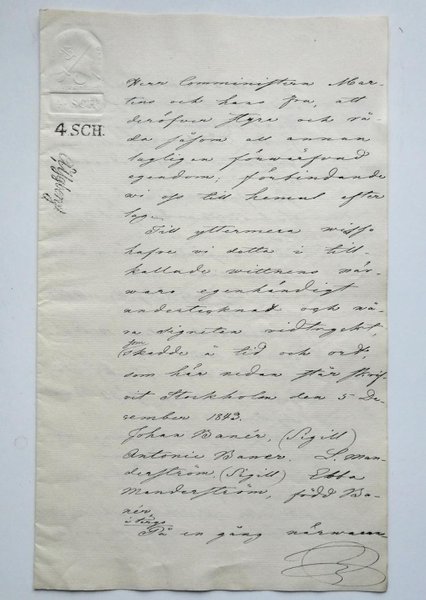 4 SCH.
4.SCH.
Herr Comministern Mar-
tens och hans Fru, att
deröfver styra och rå-
da såsom all annan
lagligen förwärfvad
egendom; förbindande
wi oss till hemul efter
lag.
Till yttermera wisso
hafve wi detta i till-
kallade wittnens när-
waro egenhändigt
undertecknat och wå-
ra signeten vidtryckt,
som
skedde å tid och ort,
som här nedan står skrif-
vit Stockholm den 5 De-
cember 1843.
Johan Banér, (Sigill)
Antonie Baner. L. Man-
derström, (Sigill) Ebba
Manderström, född Ba-
nér
På en gång närwaran